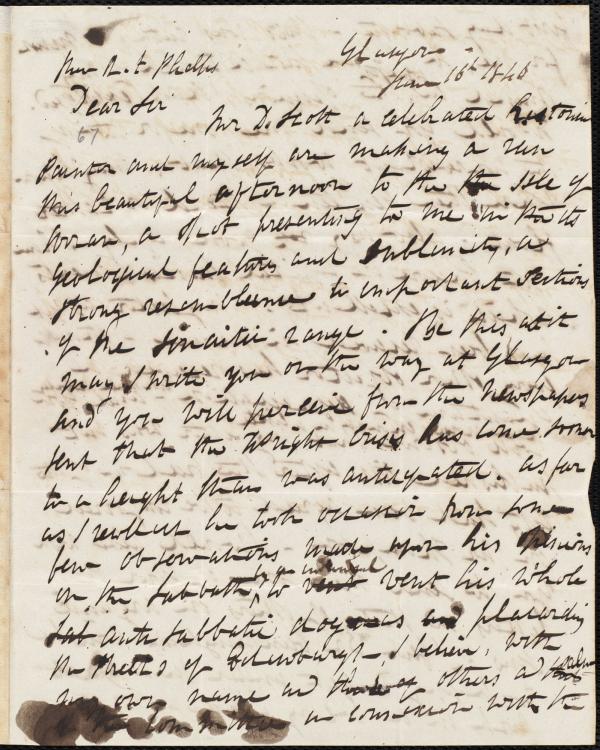 Glasgow
June 16th 1846
Rev A. A Phelps
Dear Sir
67
Mr D. Scott a celebrated historic
painter and myself are making a run
this beautiful afternoon to the Isle of
Arran, a spot presenting to me in its
geological features and sublimity, a
strong resemblance to important sections
of the Sinaitic range. Be this as it
may I write you on the way at Glasgow
and you will perceive from the Newspapers
sent that the Wright Crisis has come sooner
to a height than was anticipated. as far
as I recollect he took occasion from some
few observations made upon his opinions
on the Sabbath, to vent his whole
anti sabbatic dogmas placarding
the streets of Edinburgh, I believe, with
his own name and those of others
in connexion with the